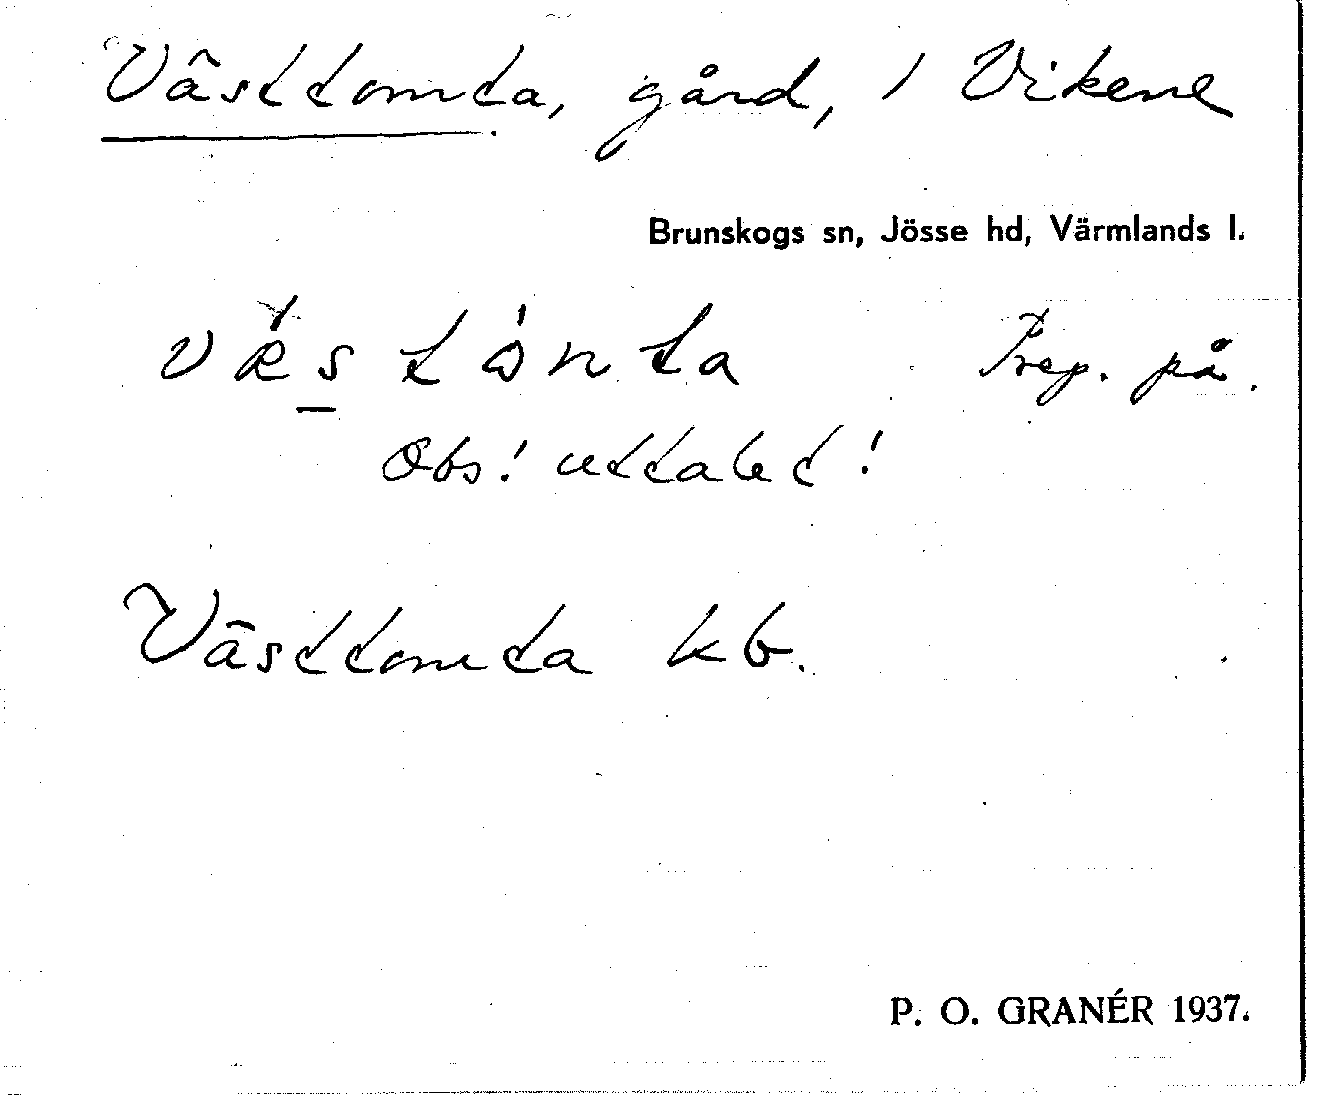 Västtomta, gård, / Vikene
Brunskogs sn, Jösse hd, Värmlands l.
Prep. på.
Obs! uttalet!
Västtomta kb.
P. O. GRANÉR 1937.